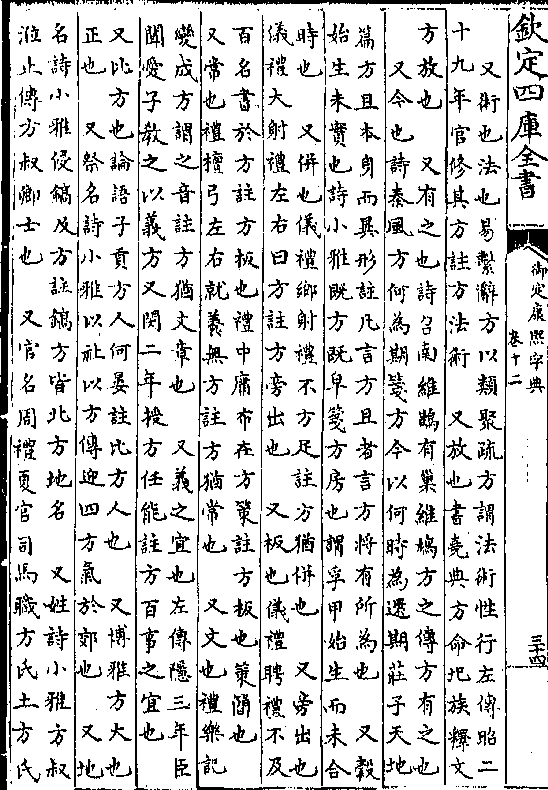 欽定四庫全書
御定康熙字典
卷十二
三十四
又術也法也易繫辭方以類聚疏方謂法術性行左傳昭二
十九年官修其方註方法術　又放也書堯典方命圮族釋文
方放也　又有之也詩召南維鵲有巢維鳩方之傳方有之也
又今也詩秦風方何為期箋方今以何時為還期莊子天地
篇方且本身而異形註凡言方且者言方將有所為也　又穀
始生未實也詩小雅既方既皁箋方房也謂孚甲始生而未合
時也　又併也儀禮鄉射禮不方足註方猶併也　又旁出也
儀禮大射禮左右曰方註方旁出也　又板也儀禮聘禮不及
百名書於方註方板也禮中庸布在方策註方板也策簡也
又常也禮檀弓左右就養無方註方猶常也　又文也禮樂記
變成方謂之音註方猶文章也　又義之宜也左傳隱三年臣
聞愛子教之以義方又閔二年授方任能註方百事之宜也
又比方也論語子貢方人何晏註比方人也　又博雅方大也
正也　又祭名詩小雅以社以方傳迎四方氣於郊也　又地
名詩小雅侵鎬及方註鎬方皆北方地名　又姓詩小雅方叔
涖止傳方叔卿士也　又官名周禮夏官司馬職方氏土方氏